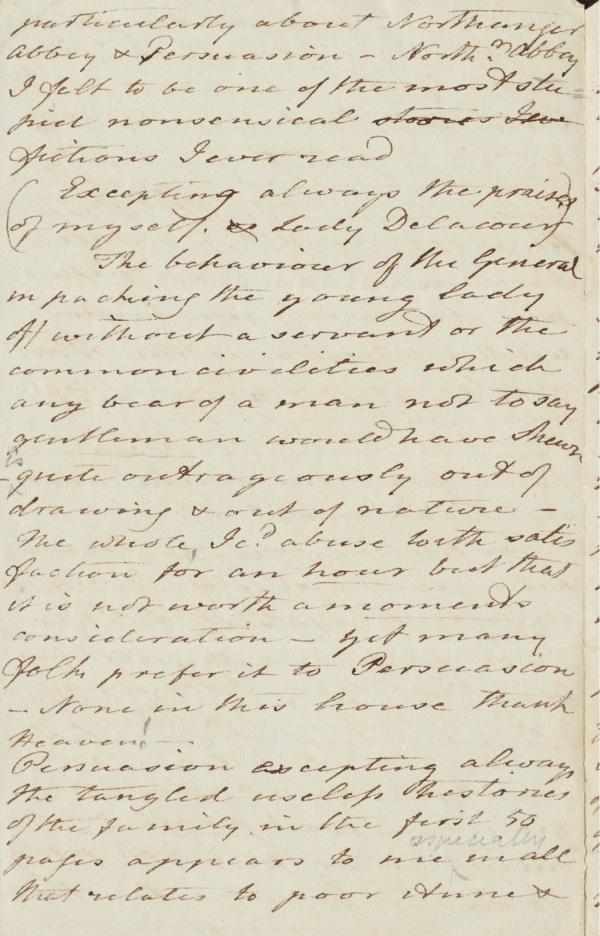 particularly about Northanger
Abbey & Persuasion – North.n Abbey
I felt to be one of the most stu
pid nonsensical stories I ev
fictions I ever read
(Excepting always the praises
of myself. & Lady Delacour)
The behaviour of the General
in packing the young lady
off without a servant or the
common civilities which
any bear of a man not to say
gentleman would have shewn
- is quite outrageously out of
drawing & out of nature –
The whole I cd abuse with satis
faction for an hour but that
it is not worth a moments
consideration – yet many
folk prefer it to Persuasion
– None in this house thank
Heaven! –
Persuasion excepting always
the tangled useless histories
of the family in the first 50
pages appears to me especially in all
that relates to poor Anne &